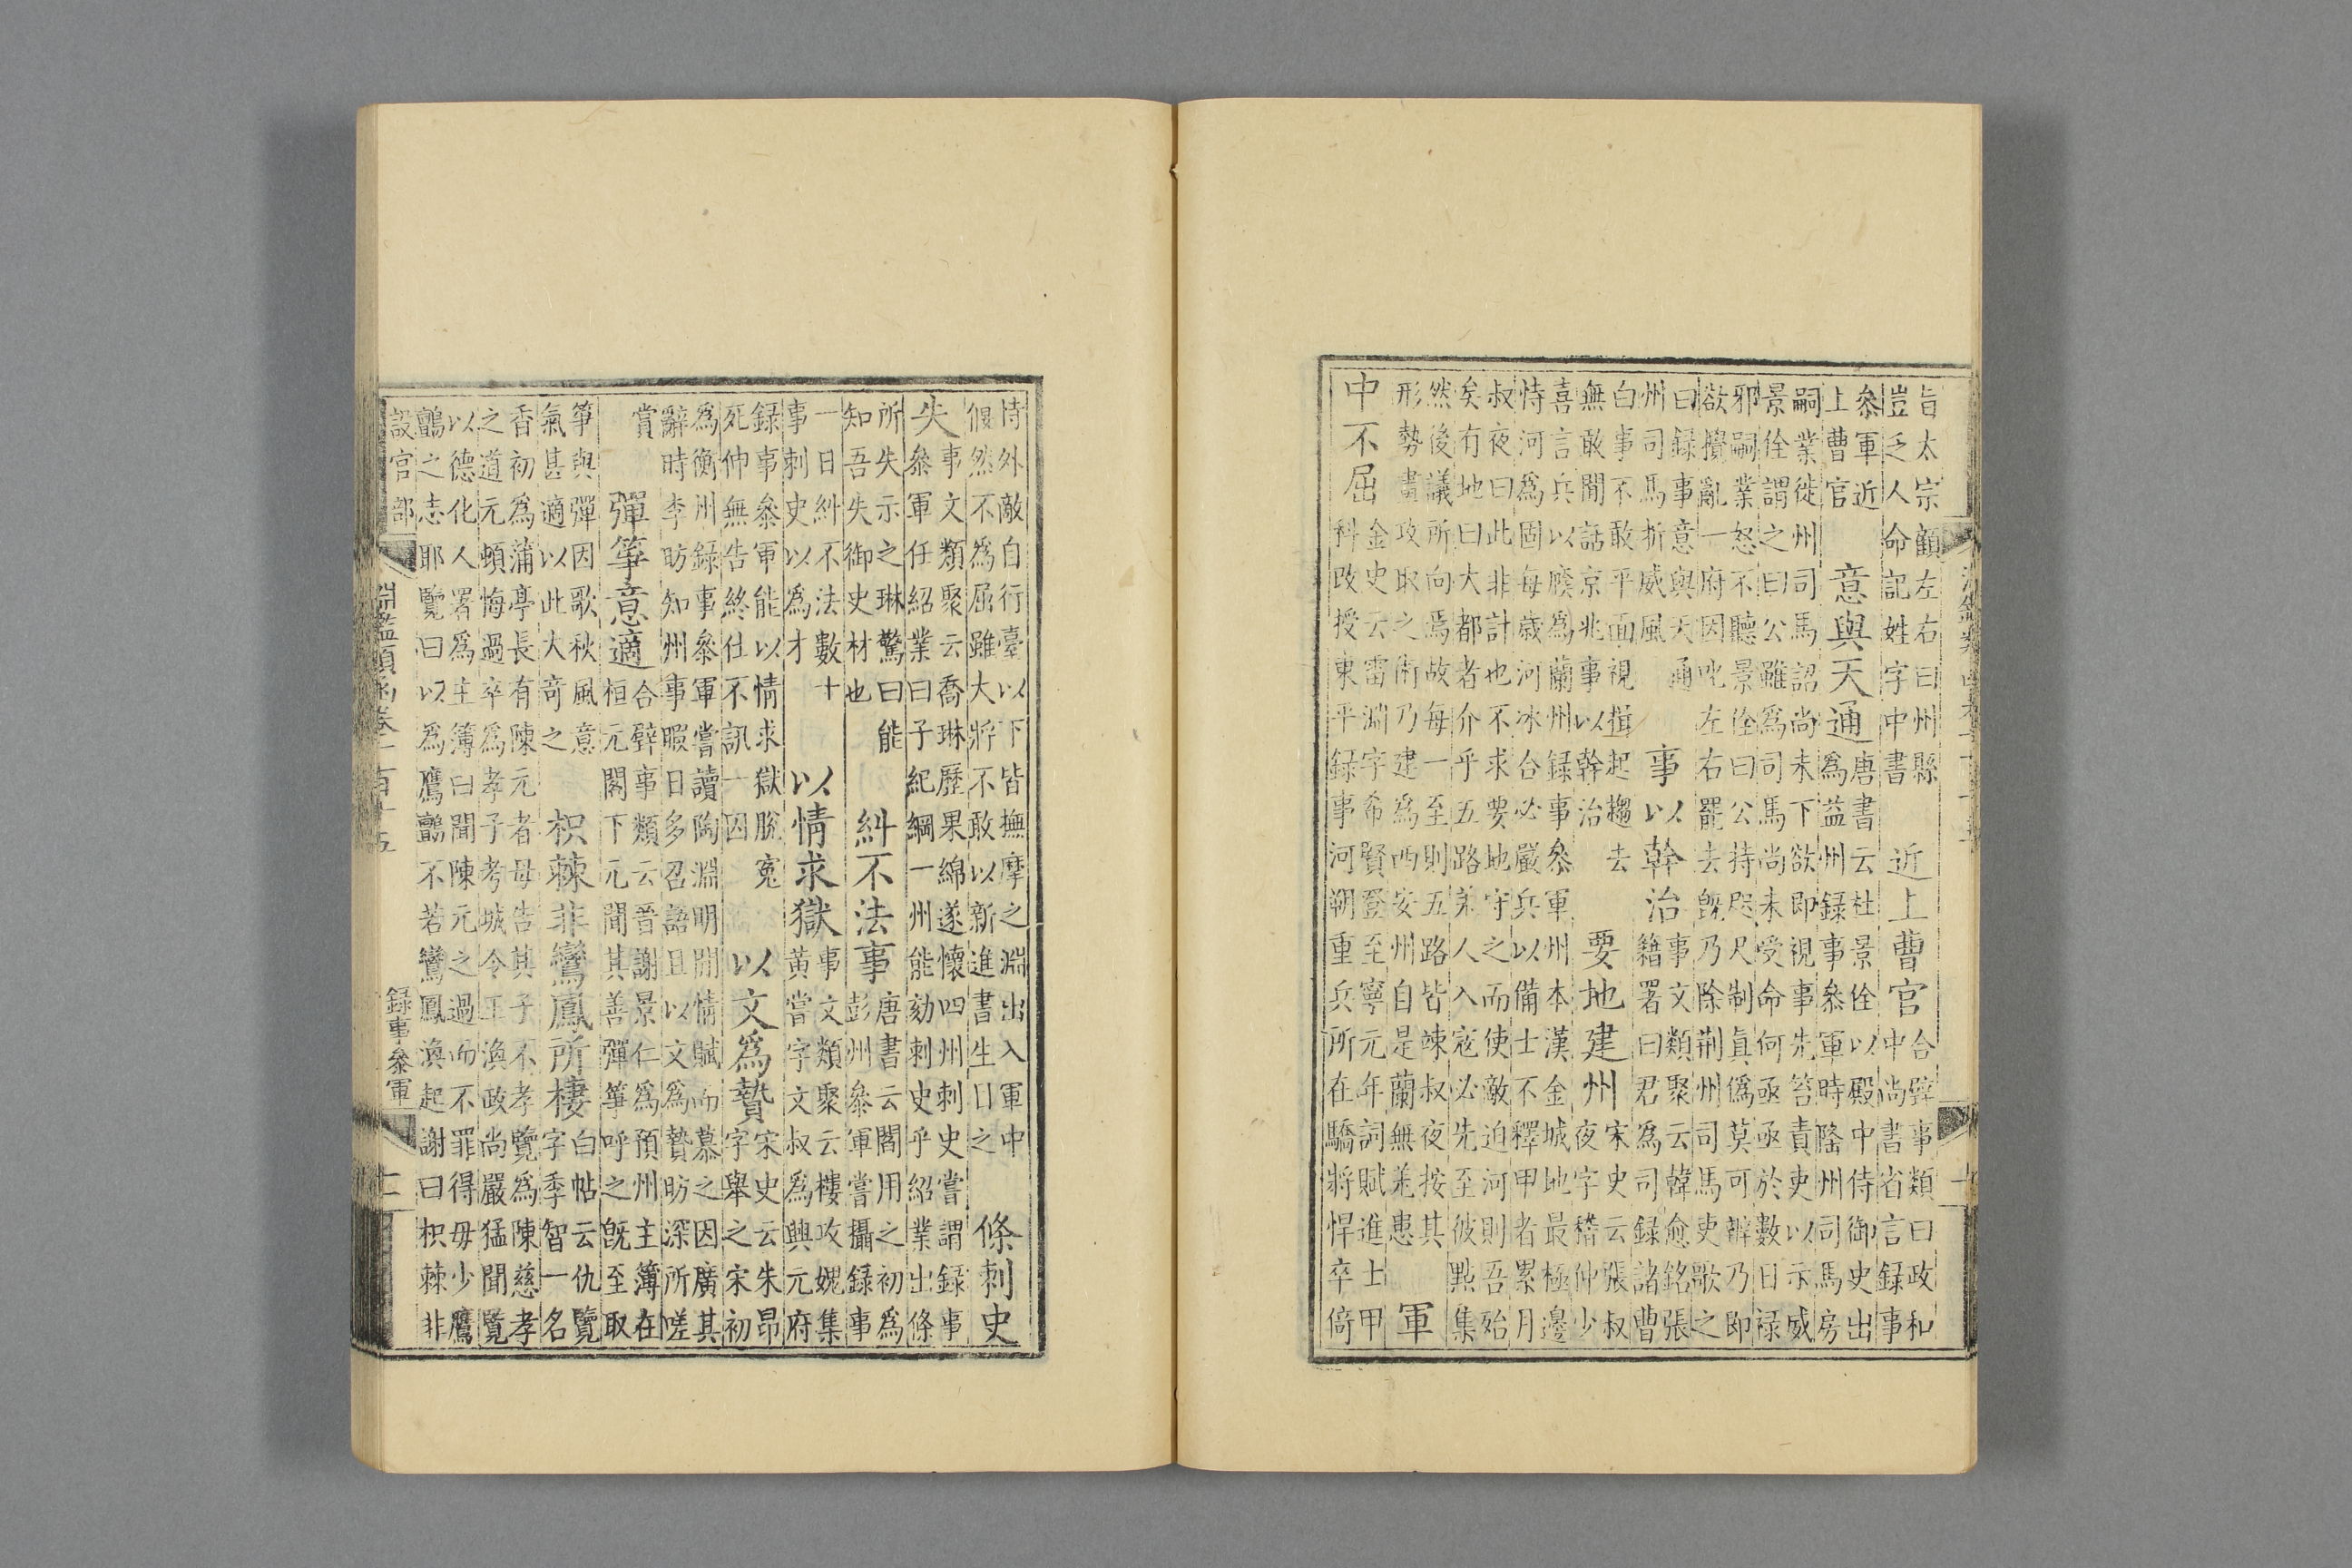 旨太宗顧左右曰州縣
豈乏人命記姓字中書
近上曹官
合璧事類曰政和
中尚書省言録事
參軍近
上曹官
意與天通
唐書云杜景佺以殿中侍御史出
爲益州録事參軍時隆州司馬房
嗣業徙州司馬詔尚未下欲即視事先笞責吏以示威
景佺謂之曰公雖爲司馬尚未受命何亟亟於數日祿
邪嗣業怒不聽景佺曰公持咫尺制真僞莫可辨乃即
欲攪亂一府因叱左右罷去旣乃除荊州司馬吏歌之
曰録事意與天通
州司馬折威風
事以幹治
事文類聚云韓愈銘張
籍署曰君爲司録諸曹
白事不敢平面視揖起趨去
無敢閒話京兆事以幹治
要地建州
宋史云張叔
夜字嵇仲少
喜言兵以廕爲蘭州録事參軍州本漢金城地最極邊
恃河爲固每歲河冰合必嚴兵以備士不釋甲者累月
叔夜曰此非計也不求要地守之而使敵迫河則吾殆
矣有地曰大都者介乎五路羌人入寇必先至彼點集
然後議所向焉故每一至則五路皆竦叔夜按其
形勢畫攻取之術乃建爲西安州自是蘭無羌患
軍
中不屈
金史云雷淵字希賢登至寧元年詞賦進士甲
科改授東平録事河朔重兵所在驕將悍卒倚
恃外敵自行臺以下皆撫摩之淵出入軍中
偃然不爲屈雖大將不敢以新進書生日之
條刺史
失
事文類聚云喬琳歷果綿遂懷四州刺史嘗謂録事
參軍任紹業曰子紀綱一州能劾刺史乎紹業出條
所失示之琳驚曰能
知吾失御史材也
糾不法事
唐書云閻用之初爲
彭州參軍嘗攝録事
一日糾不法數十
事刺史以爲才
以情求獄
事文類聚云樓攻媿集
黃嘗字文叔爲興元府
録事參軍能以情求獄脫冤
死伸無告終仕不訊一囚
以文爲贄
宋史云朱昂
字舉之宋初
爲衡州録事參軍嘗讀陶淵明閒情賦而慕之因廣其
辭時李昉知州事暇日多召語且以文爲贄昉深所嗟
賞
彈箏意適
合璧事類云晉謝景仁爲預州主簿在
桓元閣下元聞其善彈箏呼之旣至取
箏與彈因歌秋風意
氣甚適以此大奇之
枳棘非鸞鳳所棲
白帖云仇覽
字季智一名
香初爲蒲亭長有陳元者母告其子不孝覽爲陳慈孝
之道元頓悔過卒爲孝子考城令王渙政尚嚴猛聞覽
以德化人署爲主簿曰聞陳元之過而不罪得毋少鷹
鸇之志耶覽曰以爲鷹鸇不若鸞鳳渙起謝曰枳棘非
設官部
淵鑑類函卷一百十五
録事參軍